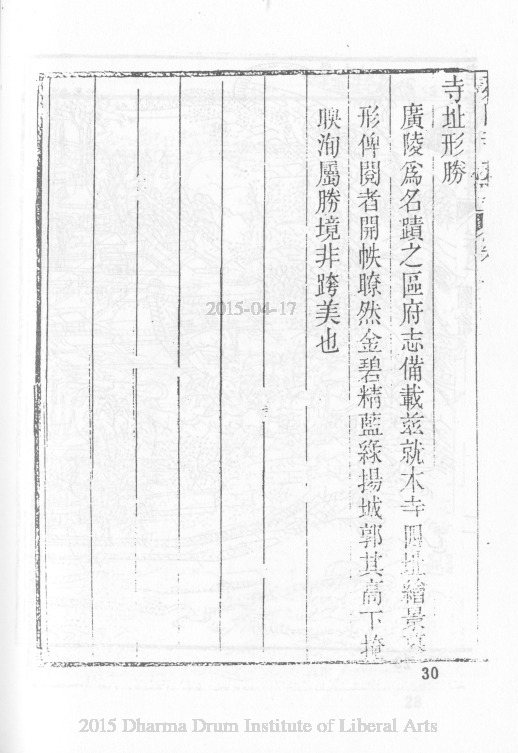 寺址形勝
廣陵爲名蹟之區府志備載茲就本寺 址繪景
形俾閱者開帙瞭然金碧精藍綠揚城郭其高下掩
映洵屬勝境非跨美也
2015-04-17
30
2015 Dharma Drum Institute of Liberal Arts